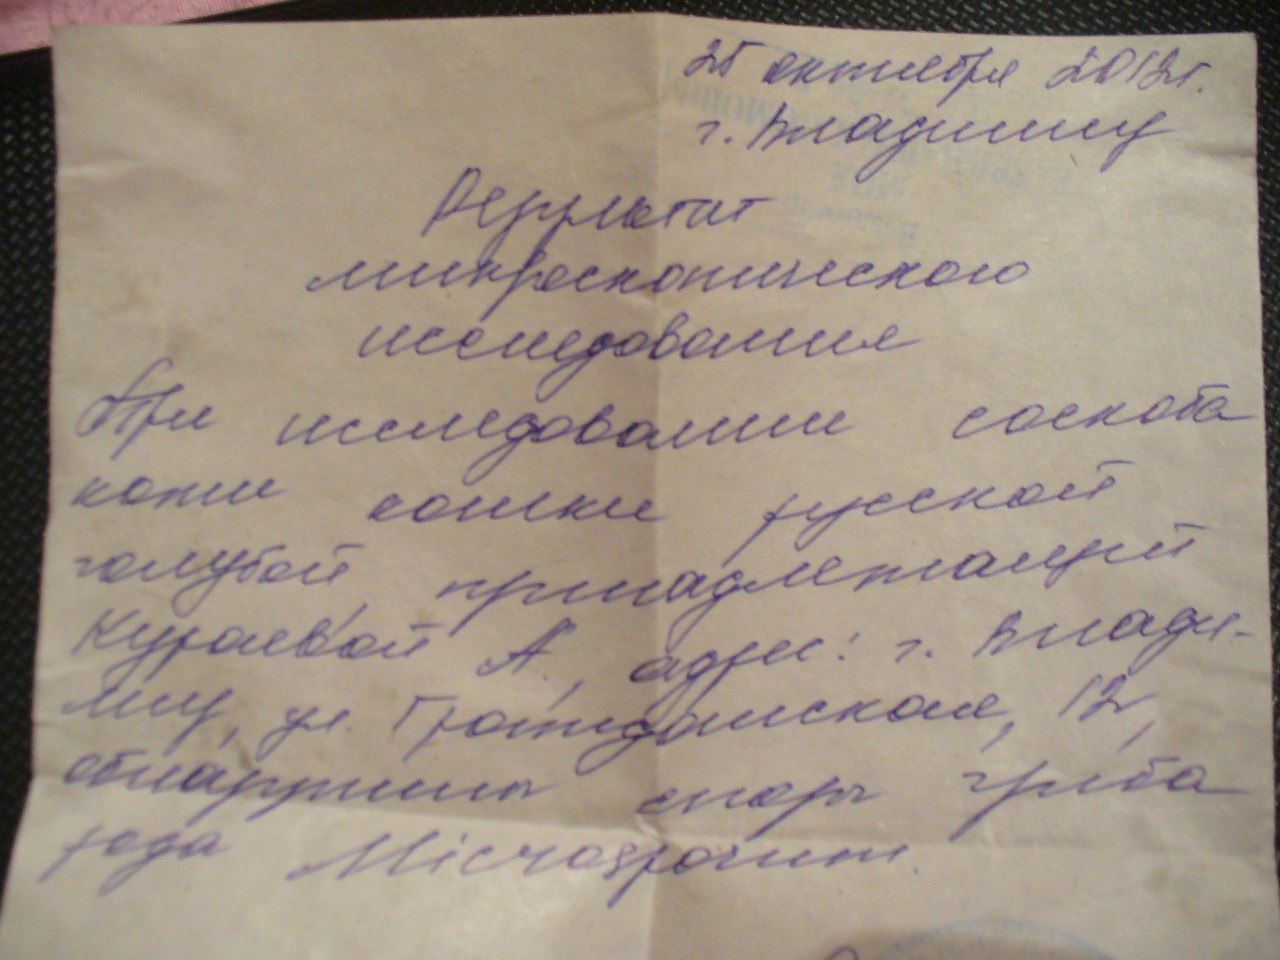 25 октября 2012г.
г. Владимир
Результат
микроскопического
исследования
При исследовании соскоба
кожи кошки русской
голубой, принадлежащей
Кураевой А. адрес: г. Влади-
мир, ул. Гражданская, 12,
обнаружены споры гриба
рода Microsporum.